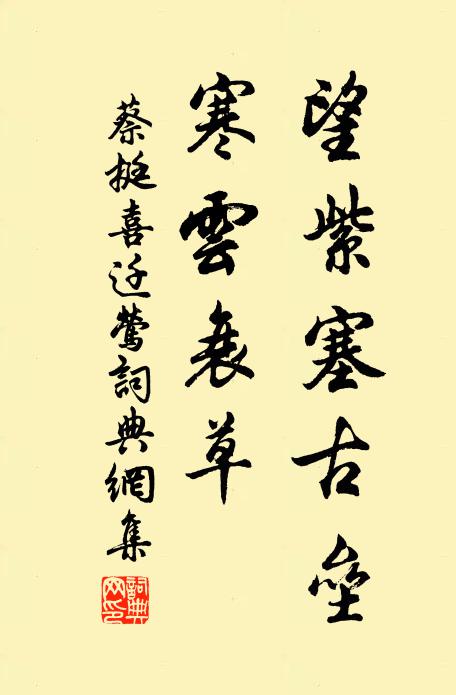 望紫塞古壘
寒雲衰草
蔡挺喜迁鶯詞典網集
詞典网印